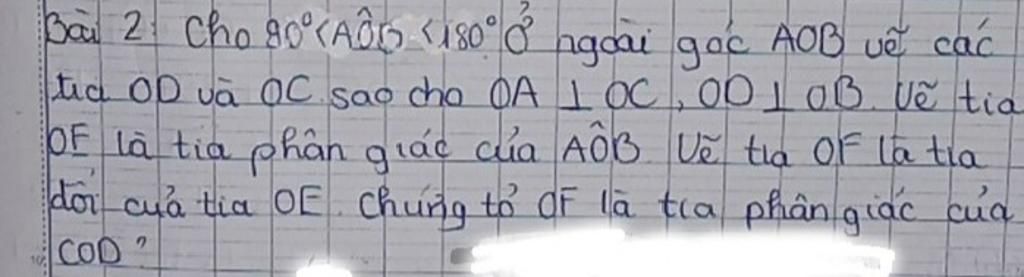 Bài 2: Cho 90° < AÔB < 180° Ở ngoài góc AOB vẽ các
tia OD và OC sao cho OA ⊥ OC, OD ⊥ OB. Vẽ tia
OE là tia phân giác của AÔB Vẽ tia OF là tia
đối của tia OE. Chứng tỏ OF là tia phân giác của
COD?